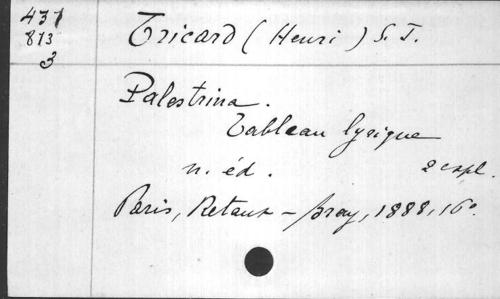 431
813
3
Tricard (Henri) S. J.
Palestrina.
Tableau lyrique
n. éd. 2 expl.
Paris, Retaux-Bray, 1888, 16º.